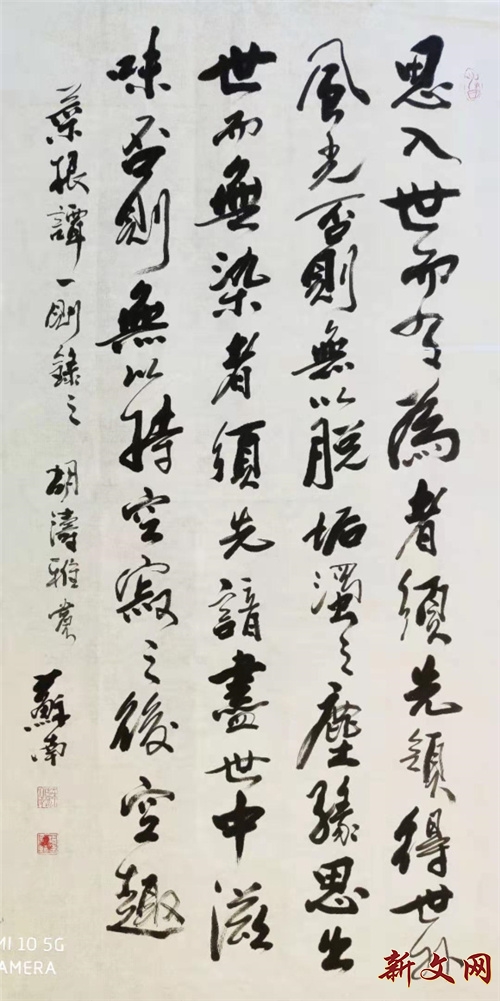 思入世而有為者須先領得世外
風光否則無以脫垢濁之塵緣思出
世而無染者須先諳盡世中滋
味否則無以持空寂之後空趣
菜根譚一則錄之 胡濤雅賞
蘇南
MI 10 5G
AMERA
新文网